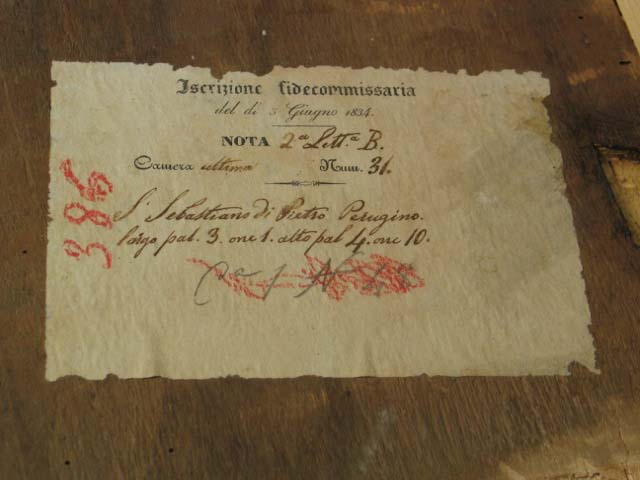 Iscrizione fidecommissaria
del dì 5 Giugno 1834.
NOTA 2a Letta B.
Camera ultima Num. 31.
386
S. Sebastiano di Pietro Perugino.
largo pal. 3. onc 1. alto pal 4. onc 10.